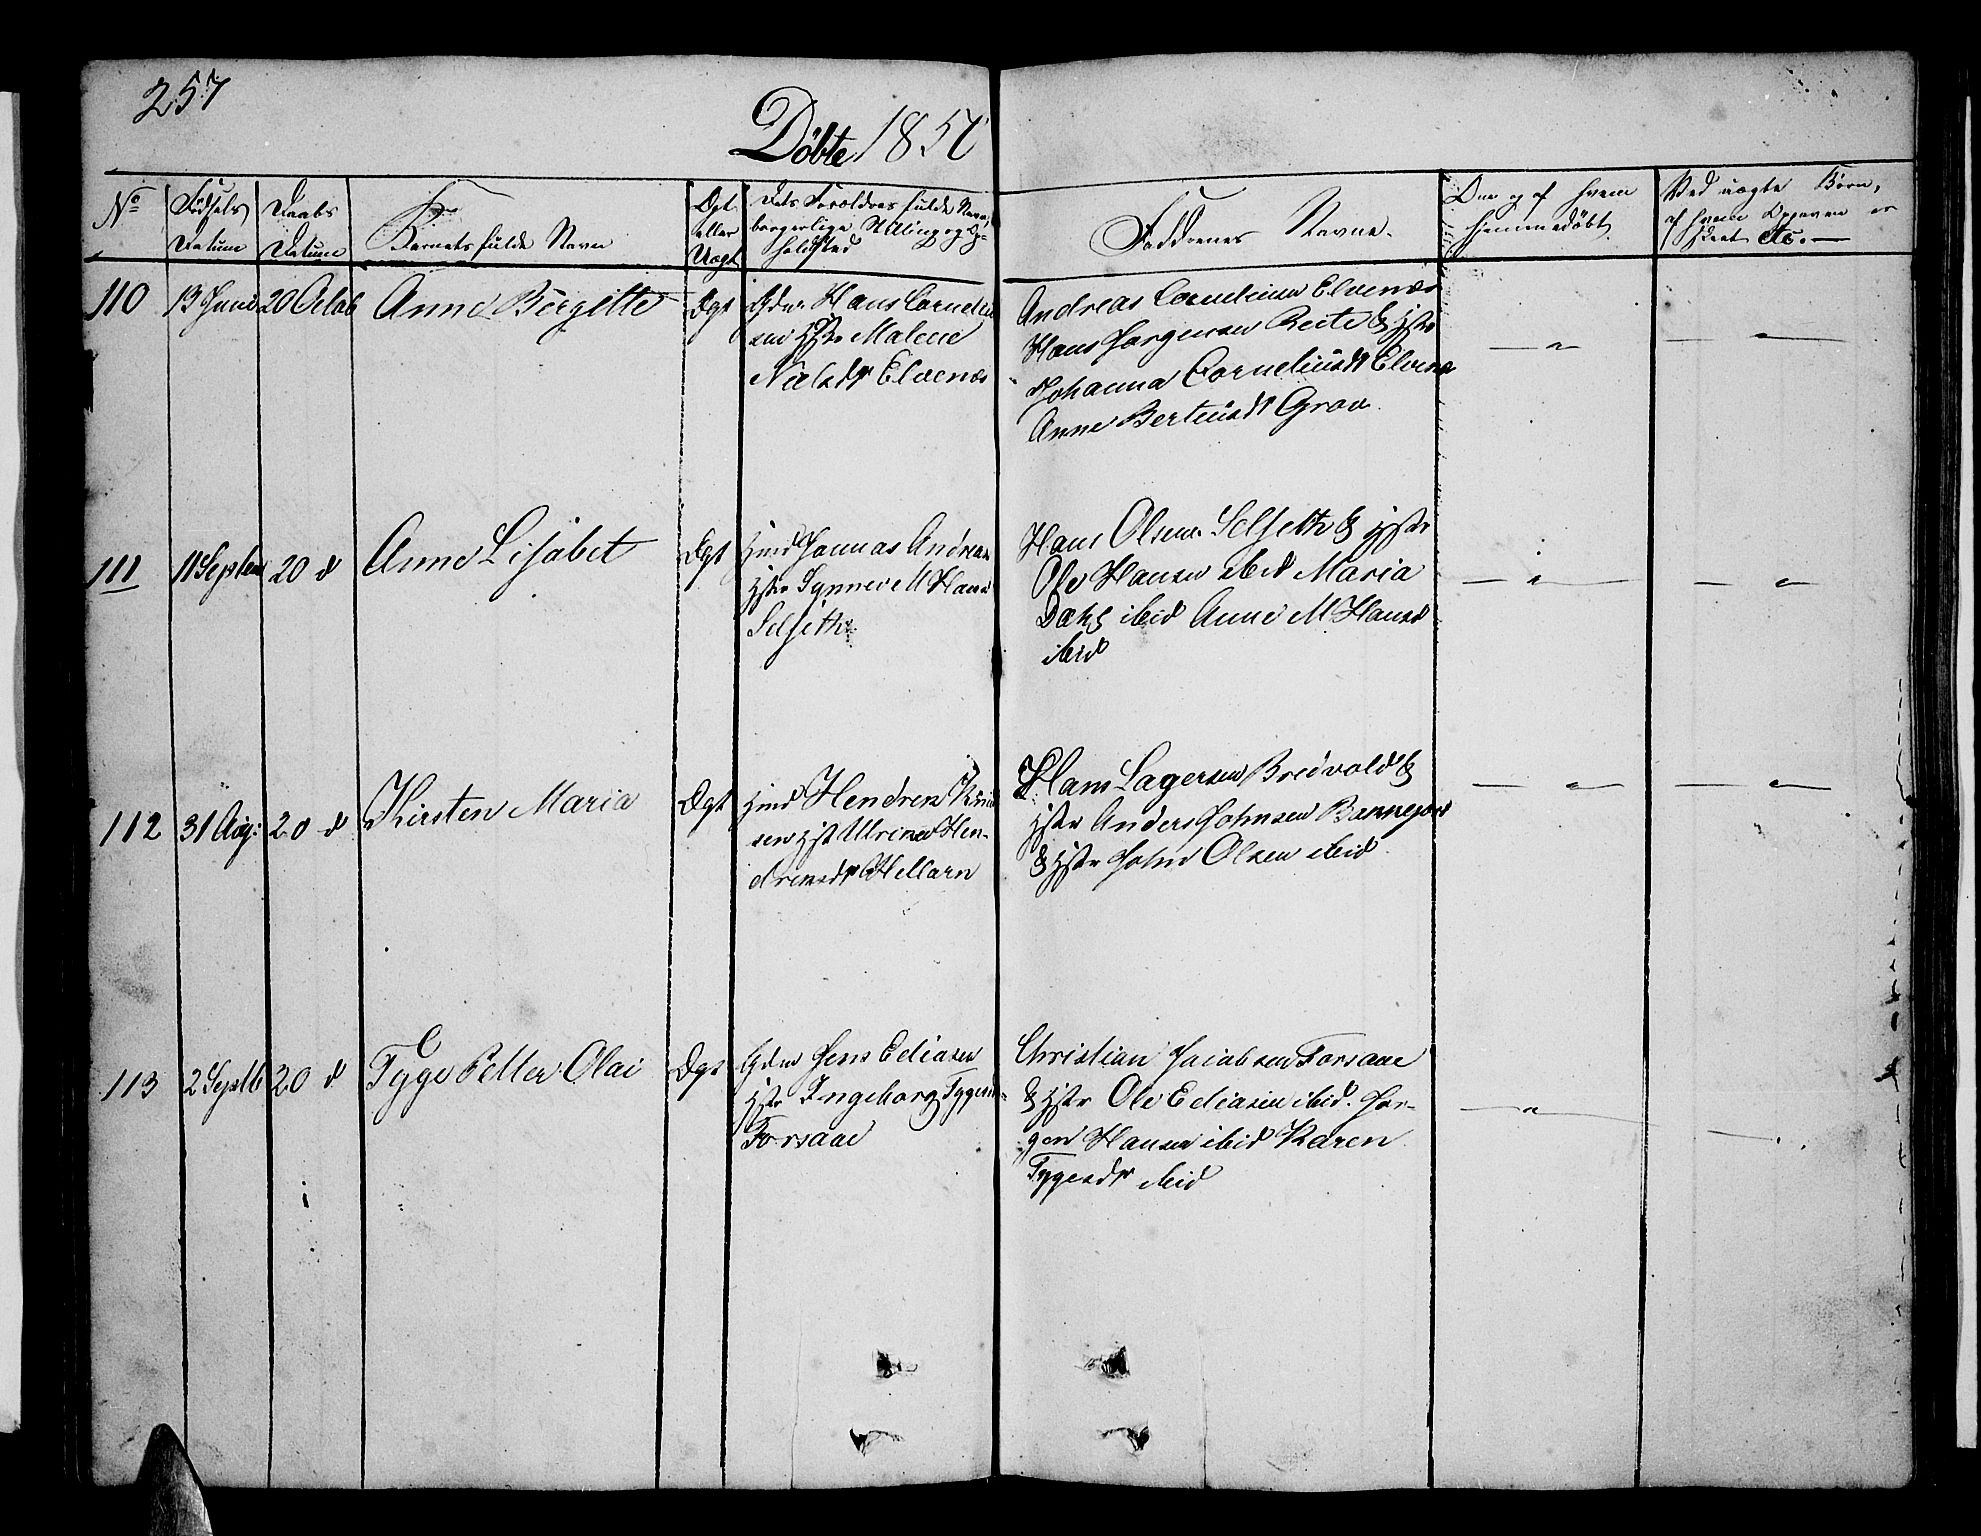 257
Döbte 1850
No
Födsels Datum
Daabs Datum
Barnets fulde Navn
Ægt eller Uægt
Dets Forældres fulde Navn, borgerlige Stilling og Op-
holdsted
Faddernes Navne.
Om og af hvem hjemmedöbt
Ved uægte Börn,
af hvem Opgaven er skeet etc.
110 13 Juni 20 Octob Anne Birgitte Ægt Gdm Hans Corneliu
sen Hst Malene
Nielsdr Elvenæs
Andreas Cornelius Elvenæs
Hans Jørgensen Reite & Hstr
Johanna Corneliusdr Elvenæs
Anne Bertheusdr Grov
111 11 Septem 20 d Anne Lisabet Ægt Hmd Jonnas Andreas
Hstr Synnev M Hans
Selseth
Hans Olsen Selseth & Hstr
Ole Hansen ibid Maria
Dahl ibid Anne M Hansd
ibid
112 31 Aug: 20 d Kirsten Maria Ægt Hmd Hendrik Knud
sen Hst Ulrina Hen-
driksdr Hellarn
Hans Lagersen Bredvold &
Hstr Anders Johnsen Bonnegard
& Hstr John Olsen ibid
113 2 Septb 20 d Tyge Petter Olai Ægt Gdm Jens Eliasen
Hstr Ingeborg Tygesd
Forsaae
Christian Jacobsen Forsaae
& Hstr Ole Eliasen ibid. Jør-
gen Hansen ibid Karen
Tygesdr ibid